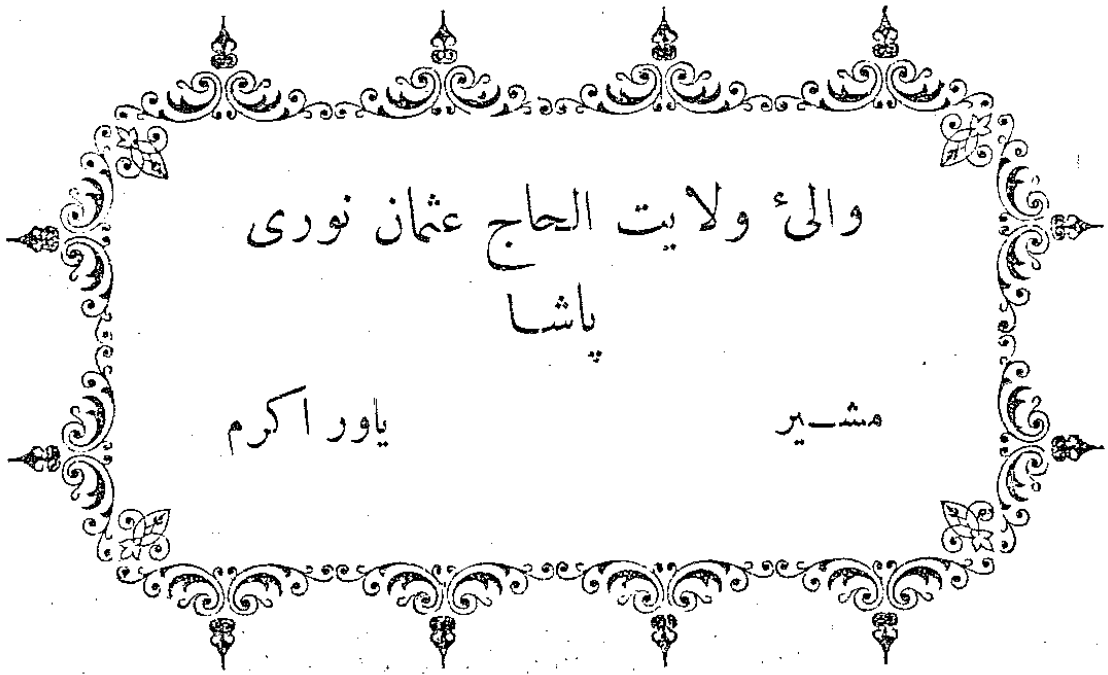 والیٔ ولایت الحاج عثمان نوری
پاشا
مشیر یاور اکرم